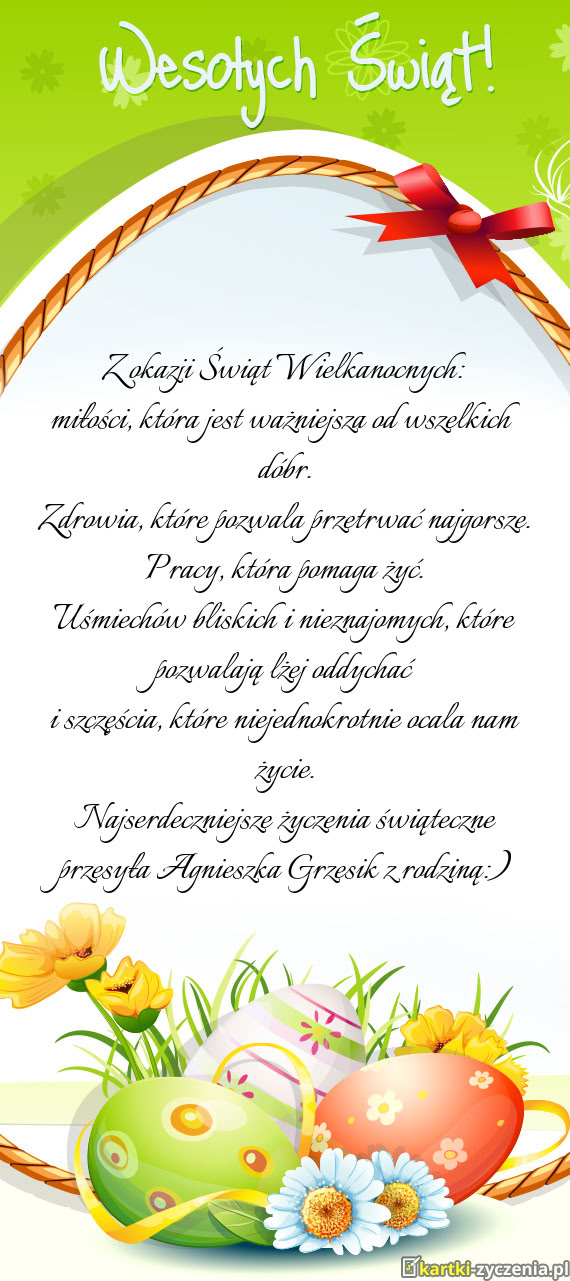 Wesołych Świąt!
Z okazji Świąt Wielkanocnych:
miłości, która jest ważniejsza od wszelkich
dóbr.
Zdrowia, które pozwala przetrwać najgorsze.
Pracy, która pomaga żyć.
Uśmiechów bliskich i nieznajomych, które
pozwalają lżej oddychać
i szczęścia, które niejednokrotnie ocala nam
życie.
Najserdeczniejsze życzenia świąteczne
przesyła Agnieszka Grzesik z rodziną:)
kartki-zyczenia.pl